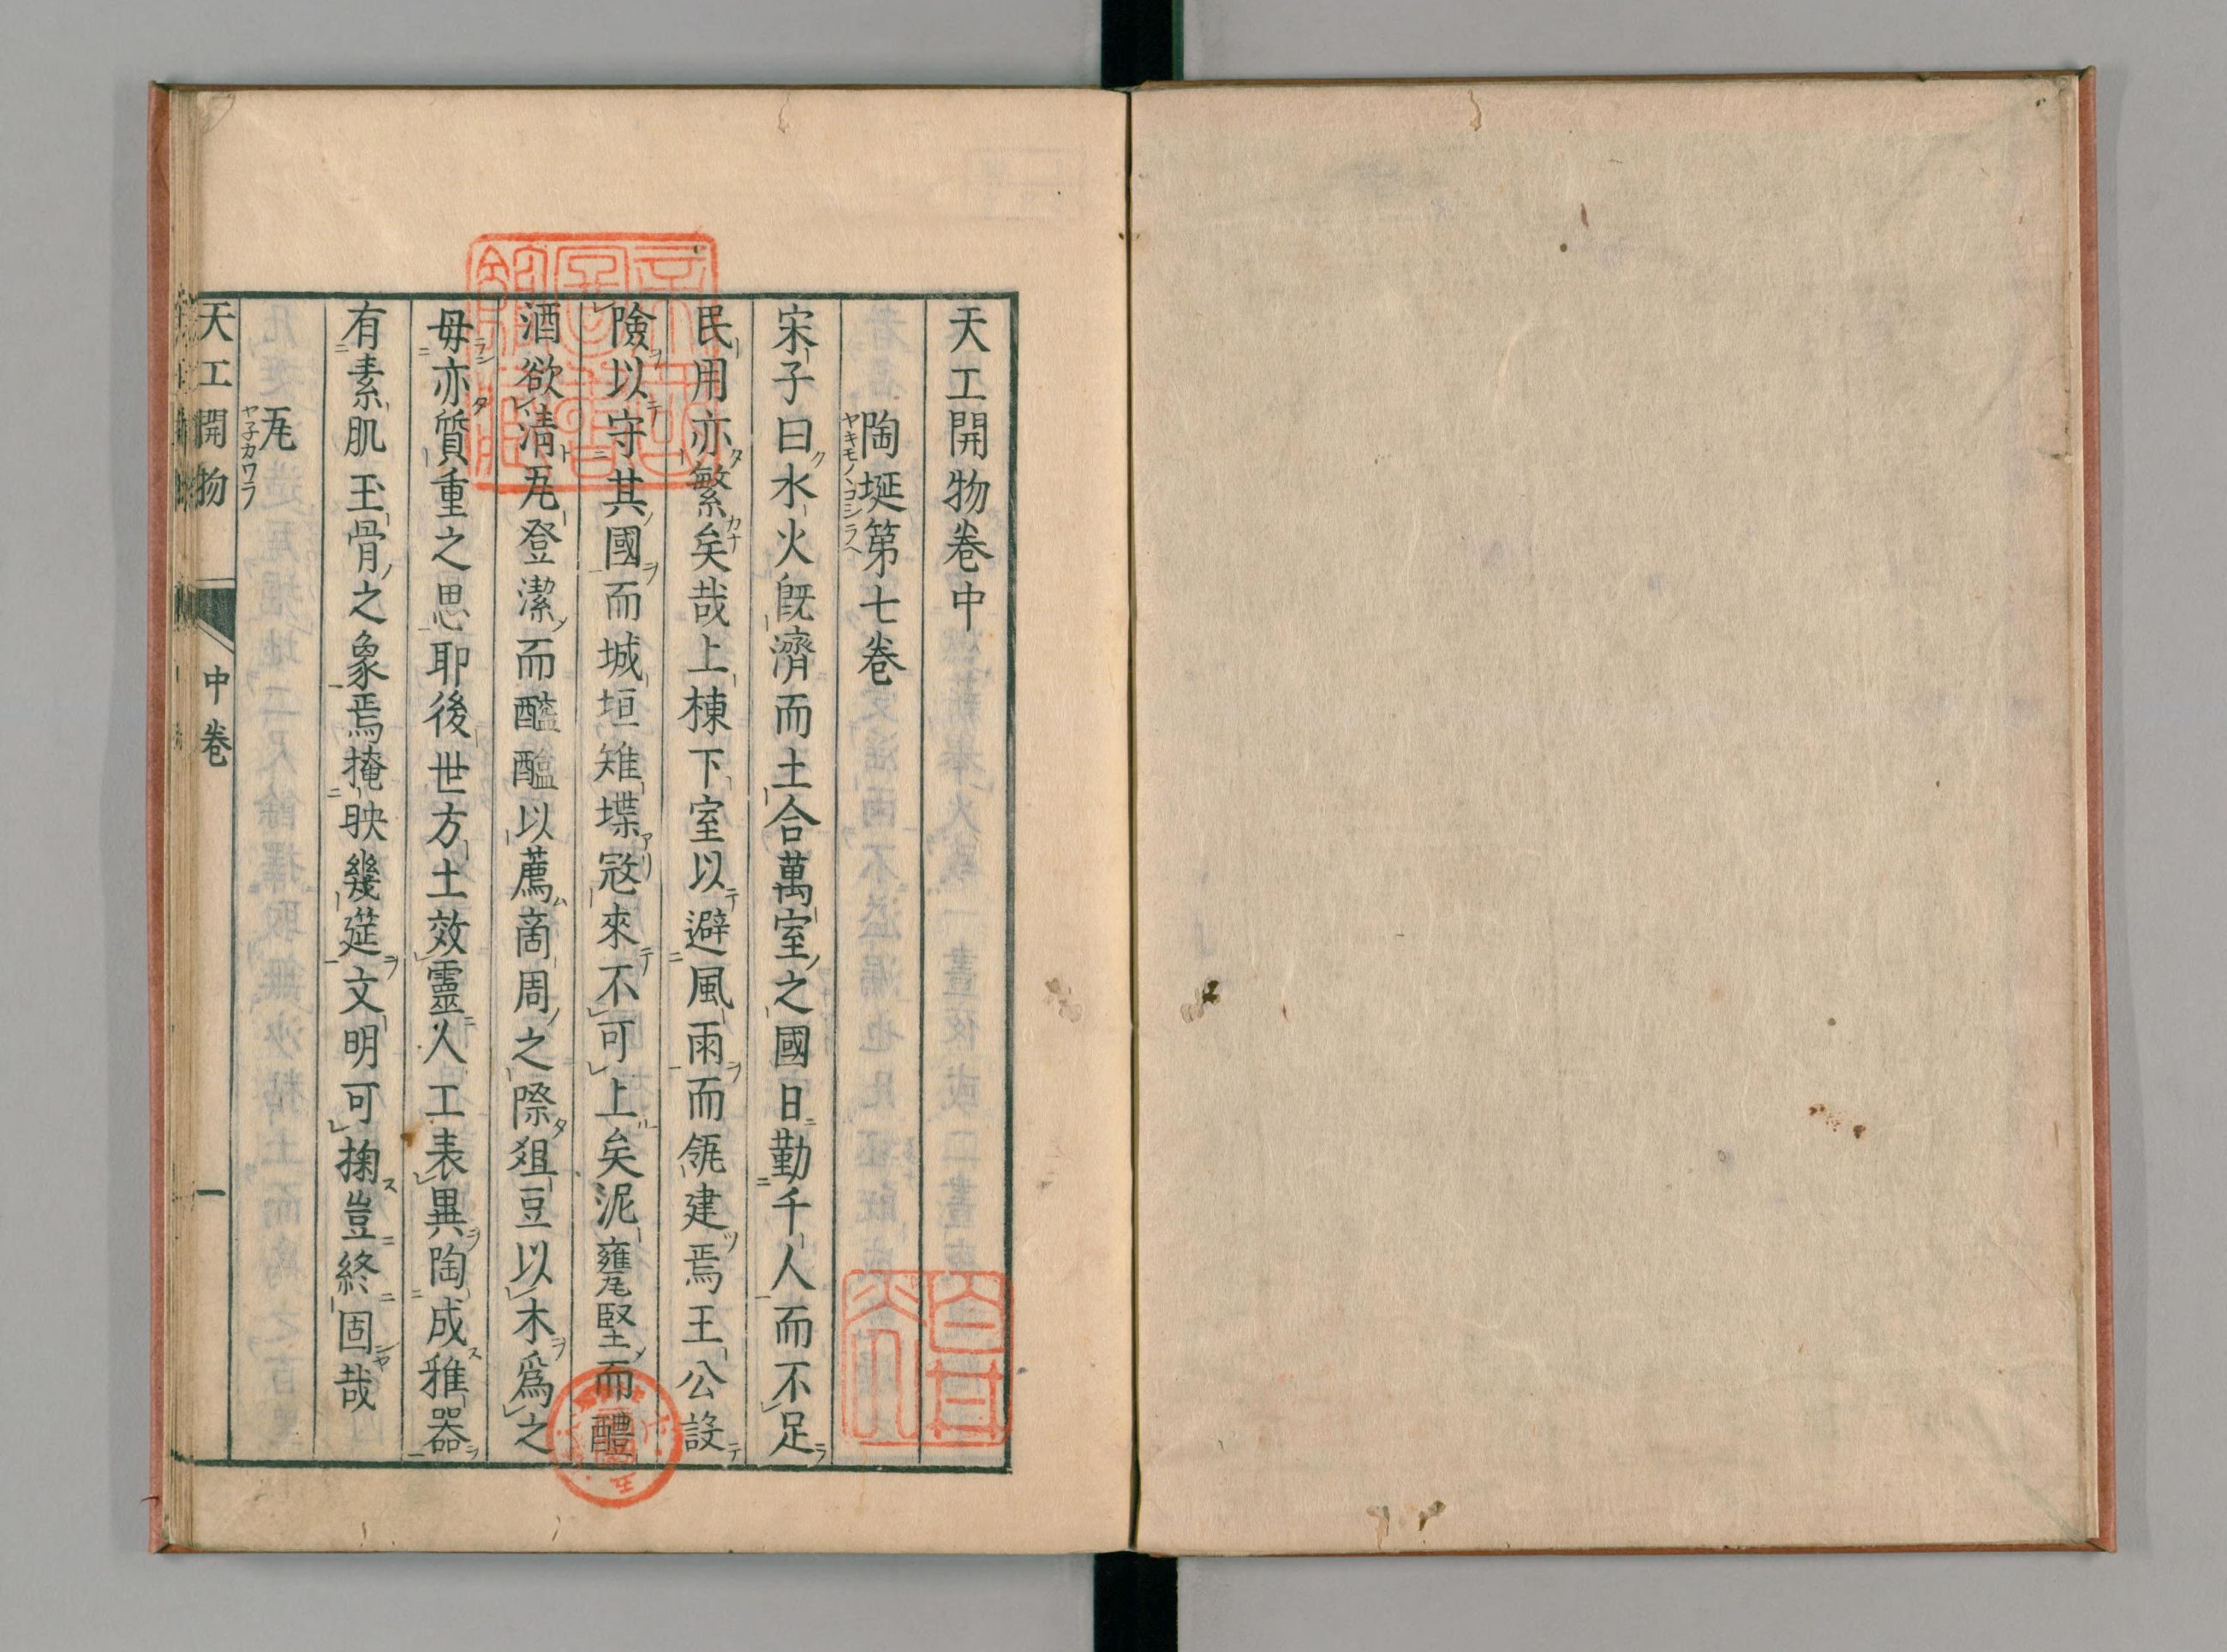 天工開物卷中
陶埏第七卷
ヤキモノコシラヘ
宋子曰水火旣濟而土合萬室之國日勤千人而不足
民用亦繁矣哉上棟下室以避風雨而瓴建焉王公設
險以守其國而城垣雉堞寇來不可上矣泥甕堅而醴
酒欲清瓦登潔而醯醢以薦商周之際俎豆以木爲之
毋亦質重之思耶後世方土效靈人工表異陶成雅器
有素肌玉骨之象焉掩映幾筵文明可掬豈終固哉
瓦
ヤネカワラ
天工開物
中卷
一